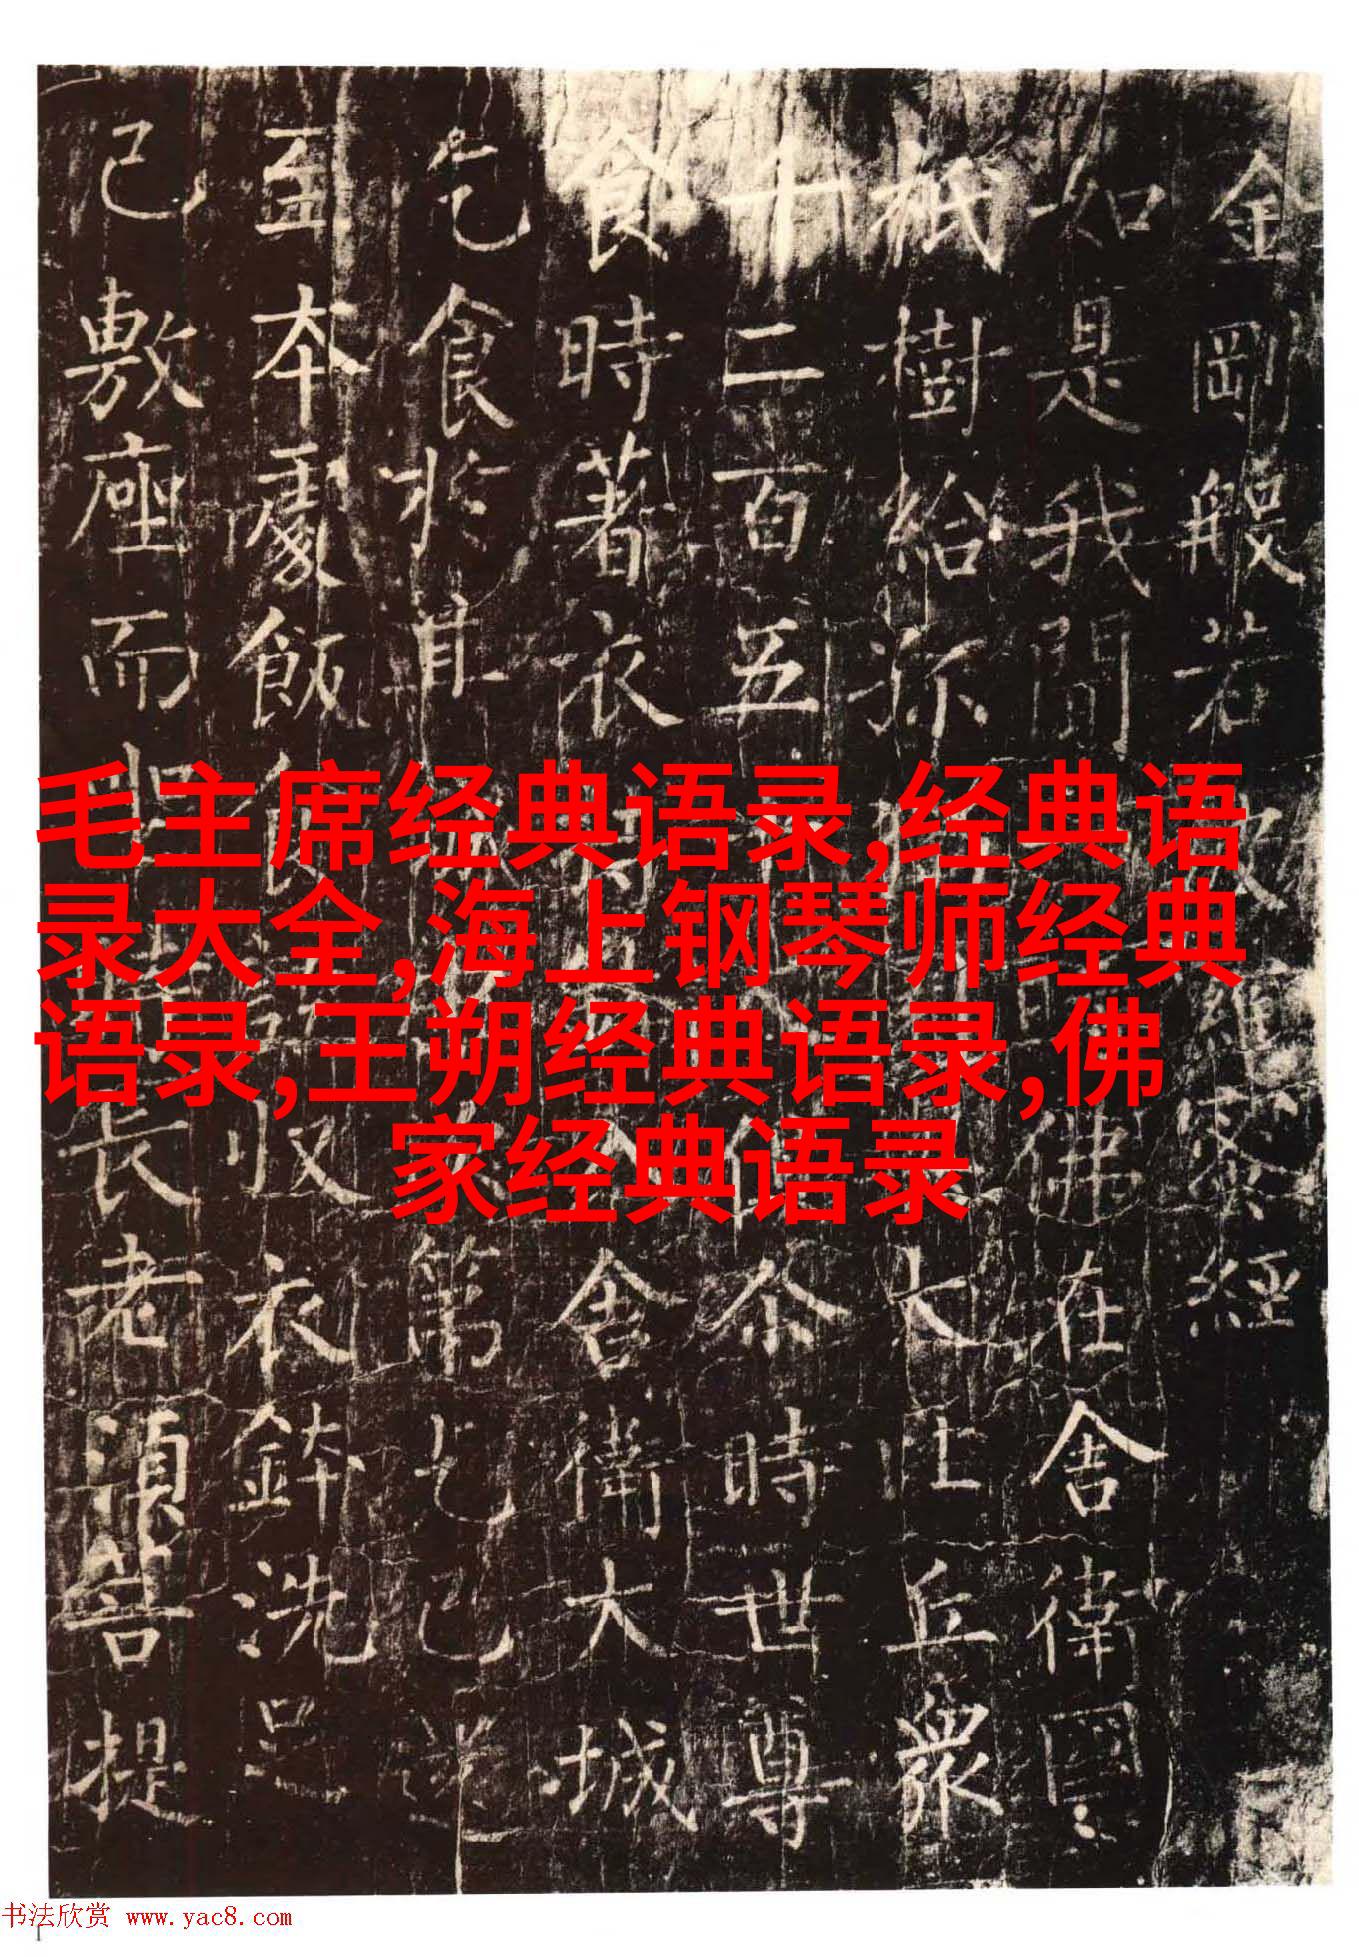 金剛般若羅蜜經
如是我聞佛在舍衛國
祇樹給孤大比丘衆
千二百五尒時世尊
食時著衣舍衛大城
乞食於其第乞已還
至本處飯收衣鉢洗足
已敷座而長老須菩提
毛主席经典语录,经典语
录大全,海上钢琴师经典
语录,王朔经典语录,佛
家经典语录
书法欣赏 www.yac8.com